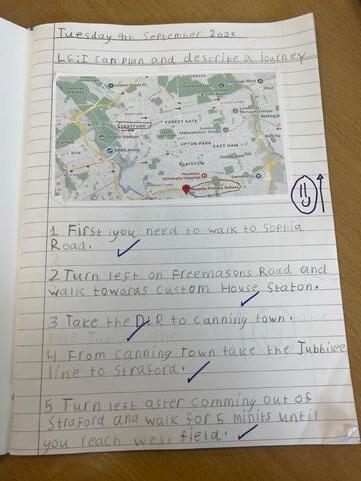 Tuesday 9th September 2025
LG: I can plan and describe a journey
FOREST GATE
STRATFORD
UPTON PARK
EAST HAM
PLAISTOW
1 First you need to walk to Sophia
Road.
2 Turn left on Freemasons Road and
walk towards Custom House Staton.
3 Take the DLR to Canning town.
4 From Canning Town take the Jubbilee
line to Straford.
5 Turn left after comming out of
Straford and walk for 5 minits until
you reach west field.